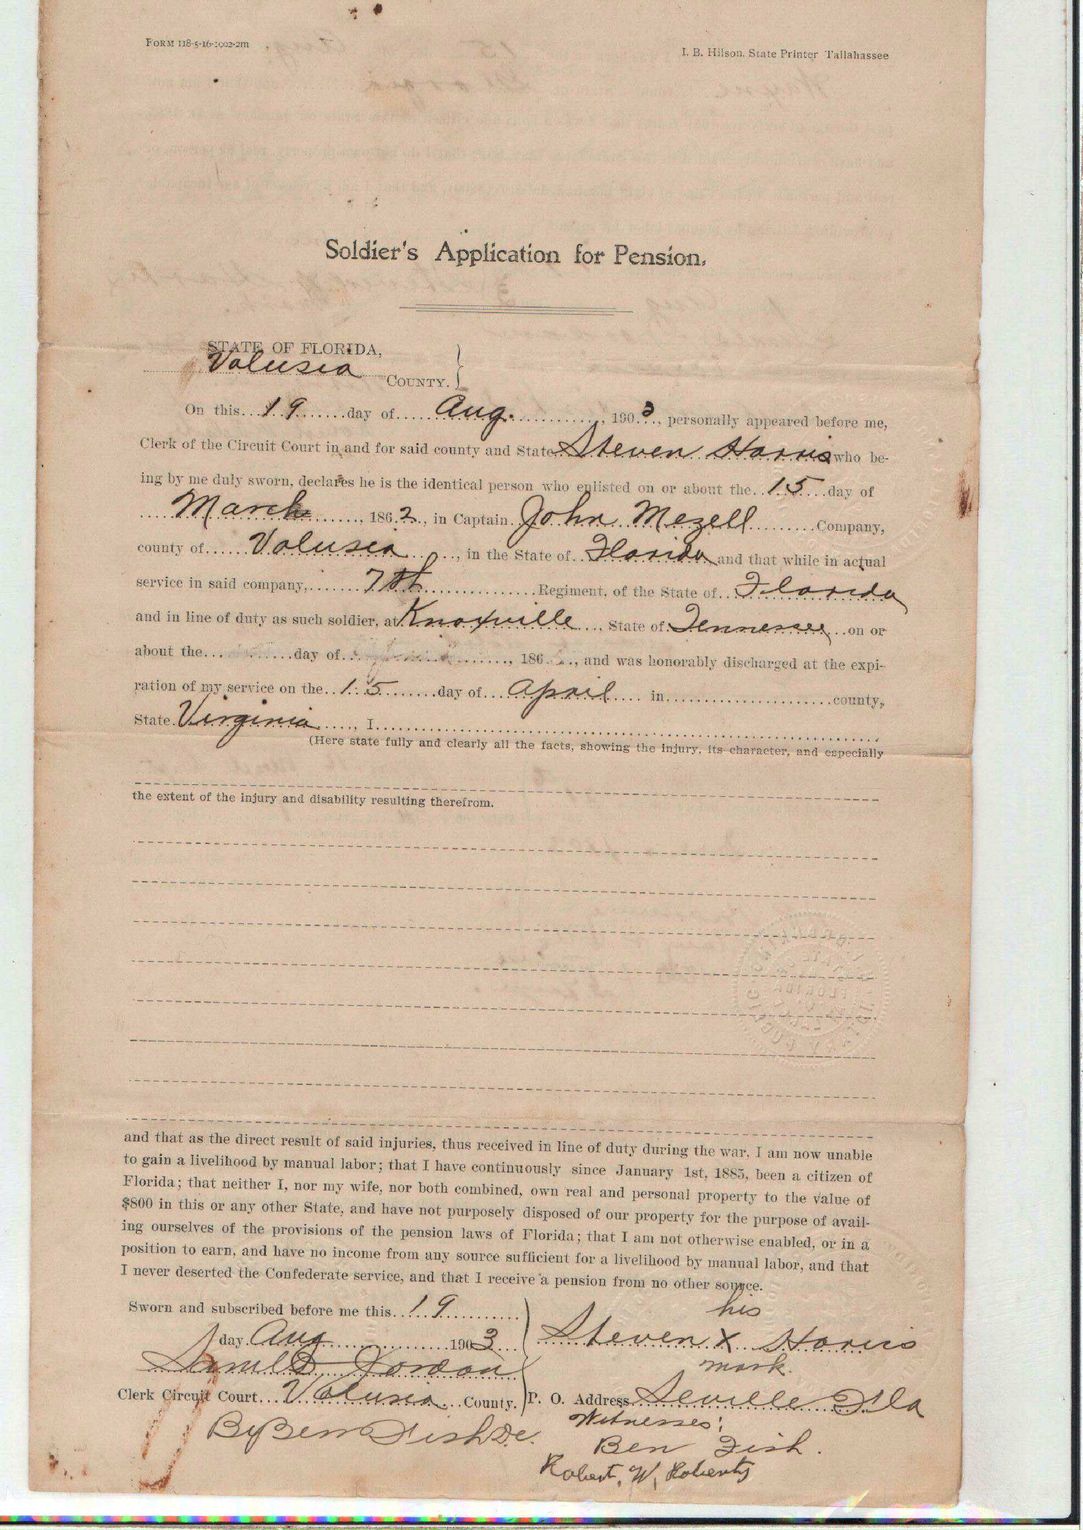 FORM 118-5-16-1902-2m
I. B. Hilson, State Printer Tallahassee
Soldier's Application for Pension.
STATE OF FLORIDA,
Volusia COUNTY.
On this 19 day of Aug. , 1903, personally appeared before me,
Clerk of the Circuit Court in and for said county and State Steven Harris who be-
ing by me duly sworn, declares he is the identical person who enlisted on or about the 15 day of
March , 1862, in Captain John Mezell Company,
county of Volusia , in the State of Florida and that while in actual
service in said company, 7th Regiment, of the State of Florida
and in line of duty as such soldier, at Knoxville , State of Tennessee on or
about the day of , 186 , and was honorably discharged at the expi-
ration of my service on the 15 day of April in county,
State Virginia , I
(Here state fully and clearly all the facts, showing the injury, its character, and especially
the extent of the injury and disability resulting therefrom.
and that as the direct result of said injuries, thus received in line of duty during the war, I am now unable
to gain a livelihood by manual labor; that I have continuously since January 1st, 1885, been a citizen of
Florida; that neither I, nor my wife, nor both combined, own real and personal property to the value of
$800 in this or any other State, and have not purposely disposed of our property for the purpose of avail-
ing ourselves of the provisions of the pension laws of Florida; that I am not otherwise enabled, or in a
position to earn, and have no income from any source sufficient for a livelihood by manual labor, and that
I never deserted the Confederate service, and that I receive a pension from no other source.
Sworn and subscribed before me this 19
day Aug 1903
his
Steven X Harris
mark.
Saml D Jordan
Clerk Circuit Court Volusia County.
P. O. Address Seville Fla
By Ben Fish D.C.
Witnesses:
Ben Fish.
Robert. W. Roberts